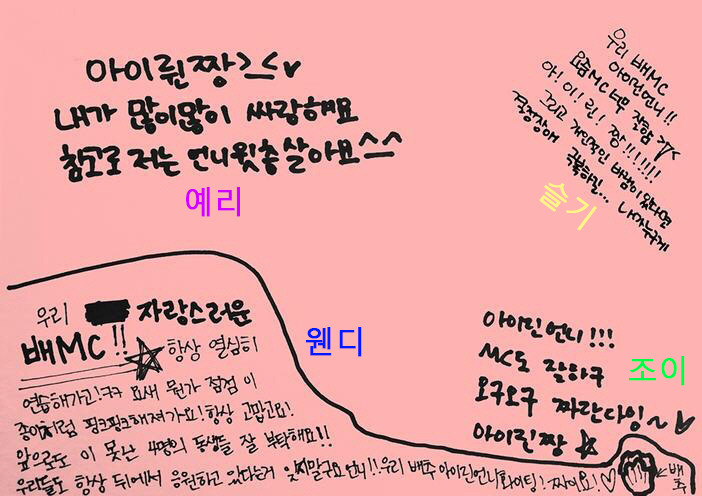 아이륀짱>_<♥
내가 많이많이 싸랑해요
참고로 저는 언니윗층 살아보^^
예리
우리 배MC
아이린언니!!
요즘MC너무 잘함 ☆
아! 이! 린! 짱!!!!!!!
그리고 개인적인 바램이 있다면
결정장애 극복하길... 내가누구게
슬기
우리 자랑스러운
배MC!! ☆ 항상 열심히
연습해가고!ㅋㅋ 요새 뭔가 점점 이
종이처럼 핑크핑크해져가요! 항상 고맙고요!
앞으로도 이 못난 4명의 동생들 잘 부탁해요!!
우리들도 항상 뒤에서 응원하고 있다는거 잊지말구요 언니!! 우리 배추 아이린언니 화이팅! 짜이요!♡
웬디
아이린언니!!!
MC도 잘하구
오구오구 짜란다잉~♥
아이린짱 ☆
조이
←배추